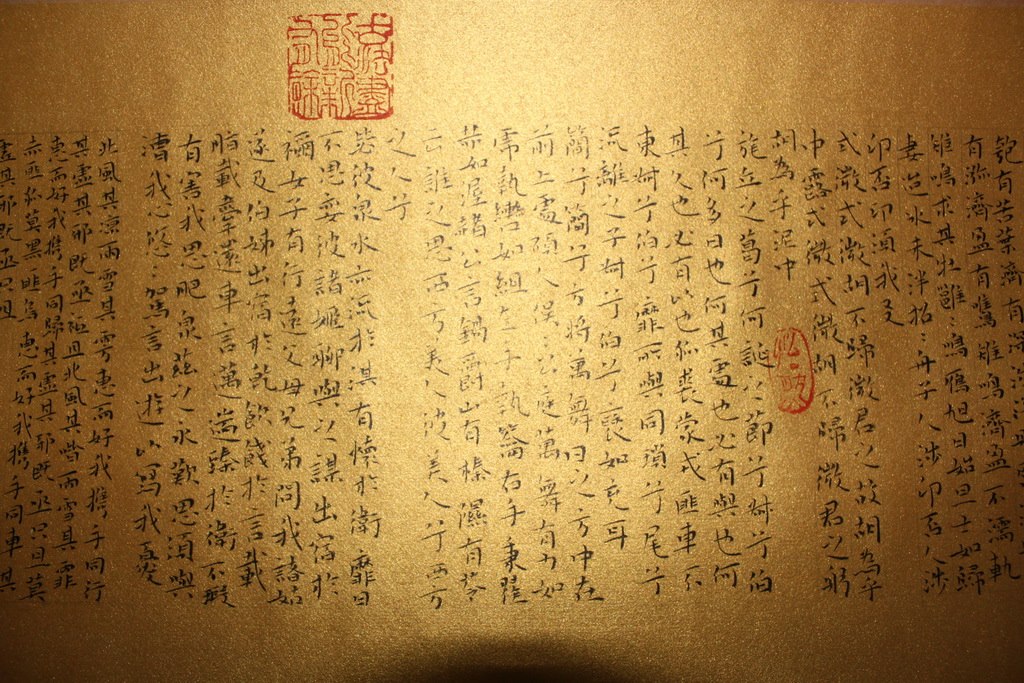 匏有苦葉濟有深涉
有瀰濟盈有鷕雉鳴濟盈不濡軌
雉鳴求其牡雝雝鳴鴈旭日始旦士如歸
妻迨冰未泮招招舟子人涉卬否人涉
卬否卬須我友
式微式微胡不歸微君之故胡為乎
中露式微式微胡不歸微君之躬
胡為乎泥中
旄丘之葛兮何誕之節兮叔兮伯
兮何多日也何其處也必有與也何
其久也必有以也狐裘蒙戎匪車不
東叔兮伯兮靡所與同瑣兮尾兮
流離之子叔兮伯兮褎如充耳
簡兮簡兮方將萬舞日之方中在
前上處碩人俁俁公庭萬舞有力如
虎執轡如組左手執籥右手秉翟
赫如渥赭公言錫爵山有榛隰有苓
云誰之思西方美人彼美人兮西方
之人兮
毖彼泉水亦流於淇有懷於衛靡日
不思孌彼諸姬聊與之謀出宿於
禰女子有行遠父母兄弟問我諸姑
遂及伯姊出宿於乾飲餞於言載
脂載舝還車言邁遄臻於衛不瑕
有害我思肥泉茲之永歎思須與
漕我心悠悠駕言出遊以寫我憂
北風其涼雨雪其雱惠而好我攜手同行
其虛其邪既亟只且北風其喈雨雪其霏
惠而好我攜手同歸其虛其邪既亟只且莫
赤匪狐莫黑匪烏惠而好我攜手同車其
虛其邪既亟只且